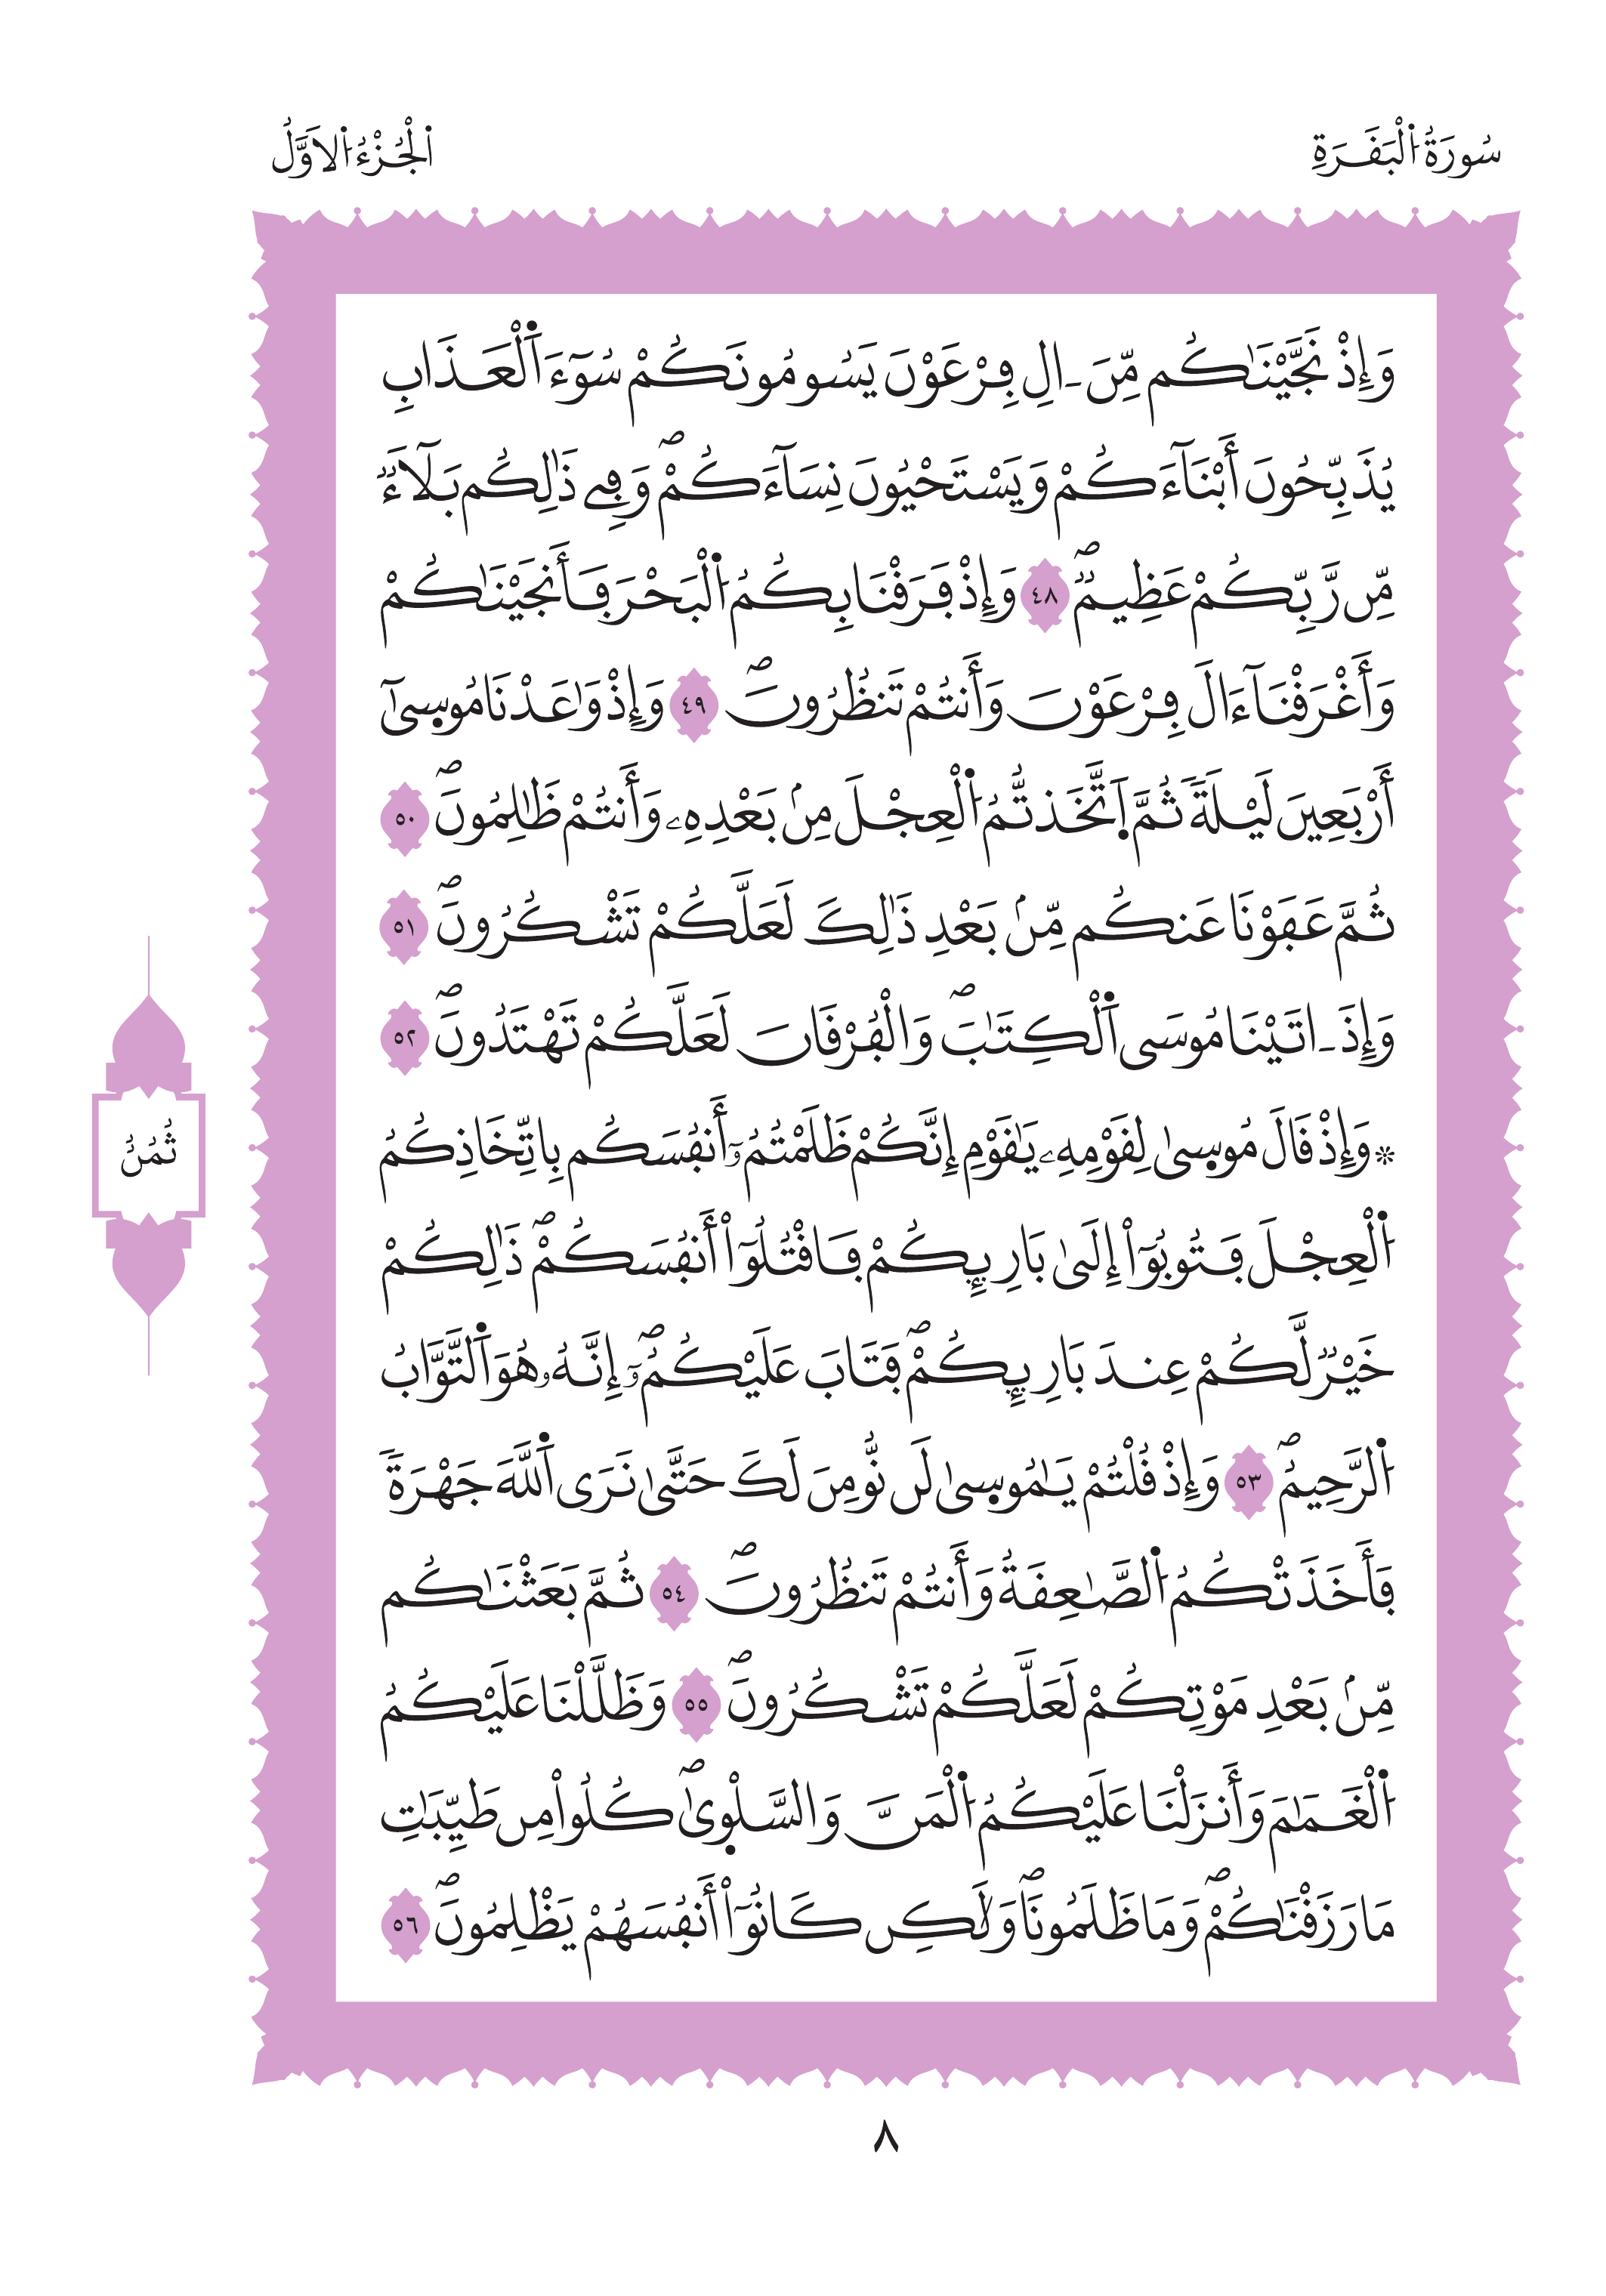 سُورَةُ اُ۬لْبَقَرَةِ
اَ۬لْجُزْءُ اُ۬لَاوَّلُ
وَإِذْ نَجَّيْنَٰكُم مِّنَ ـ الِ فِرْعَوْنَ يَسُومُونَكُمْ سُوٓءَ اَ۬لْعَذَابِ
يُذَبِّحُونَ أَبْنَآءَكُمْ وَيَسْتَحْيُونَ نِسَآءَكُمْۖ وَفِے ذَٰلِكُم بَلَآءٞ
مِّن رَّبِّكُمْ عَظِيمٞۖ ٤٨ وَإِذْ فَرَقْنَا بِكُمُ اُ۬لْبَحْرَ فَأَنجَيْنَٰكُمْ
وَأَغْرَقْنَآ ءَالَ فِرْعَوْنَ وَأَنتُمْ تَنظُرُونَۖ ٤٩ وَإِذْ وَٰعَدْنَا مُوس۪ىٰٓ
أَرْبَعِينَ لَيْلَةٗ ثُمَّ اَ۪تَّخَذتُّمُ اُ۬لْعِجْلَ مِنۢ بَعْدِهِۦ وَأَنتُمْ ظَٰلِمُونَۖ ٥٠
ثُمَّ عَفَوْنَا عَنكُم مِّنۢ بَعْدِ ذَٰلِكَ لَعَلَّكُمْ تَشْكُرُونَۖ ٥١
وَإِذَ ـ اتَيْنَا مُوسَى اَ۬لْكِتَٰبَۖ وَالْفُرْقَانَ لَعَلَّكُمْ تَهْتَدُونَۖ ٥٢
۞ وَإِذْ قَالَ مُوس۪ىٰ لِقَوْمِهِۦ يَٰقَوْمِ إِنَّكُمْ ظَلَمْتُمُۥٓ أَنفُسَكُم بِاتِّخَاذِكُمُ
اُ۬لْعِجْلَ فَتُوبُوٓاْ إِلَىٰ بَارِئِكُمْ فَاقْتُلُوٓاْ أَنفُسَكُمْۖ ذَٰلِكُمْ
خَيْرٞ لَّكُمْ عِندَ بَارِئِكُمْۖ فَتَابَ عَلَيْكُمُۥٓۖ إِنَّهُۥ هُوَ اَ۬لتَّوَّابُ
اُ۬لرَّحِيمُۖ ٥٣ وَإِذْ قُلْتُمْ يَٰمُوس۪ىٰ لَن نُّومِنَ لَكَ حَتَّىٰ نَرَى اَ۬للَّهَ جَهْرَةٗ
فَأَخَذَتْكُمُ اُ۬لصَّٰعِقَةُ وَأَنتُمْ تَنظُرُونَۖ ٥٤ ثُمَّ بَعَثْنَٰكُم
مِّنۢ بَعْدِ مَوْتِكُمْ لَعَلَّكُمْ تَشْكُرُونَۖ ٥٥ وَظَلَّلْنَا عَلَيْكُمُ
اُ۬لْغَمَٰمَ وَأَنزَلْنَا عَلَيْكُمُ اُ۬لْمَنَّ وَالسَّلْو۪ىٰۖ كُلُواْ مِن طَيِّبَٰتِ
مَا رَزَقْنَٰكُمْۖ وَمَا ظَلَمُونَاۖ وَلَٰكِن كَانُوٓاْ أَنفُسَهُمْ يَظْلِمُونَۖ ٥٦
ثُمُنُ
٨